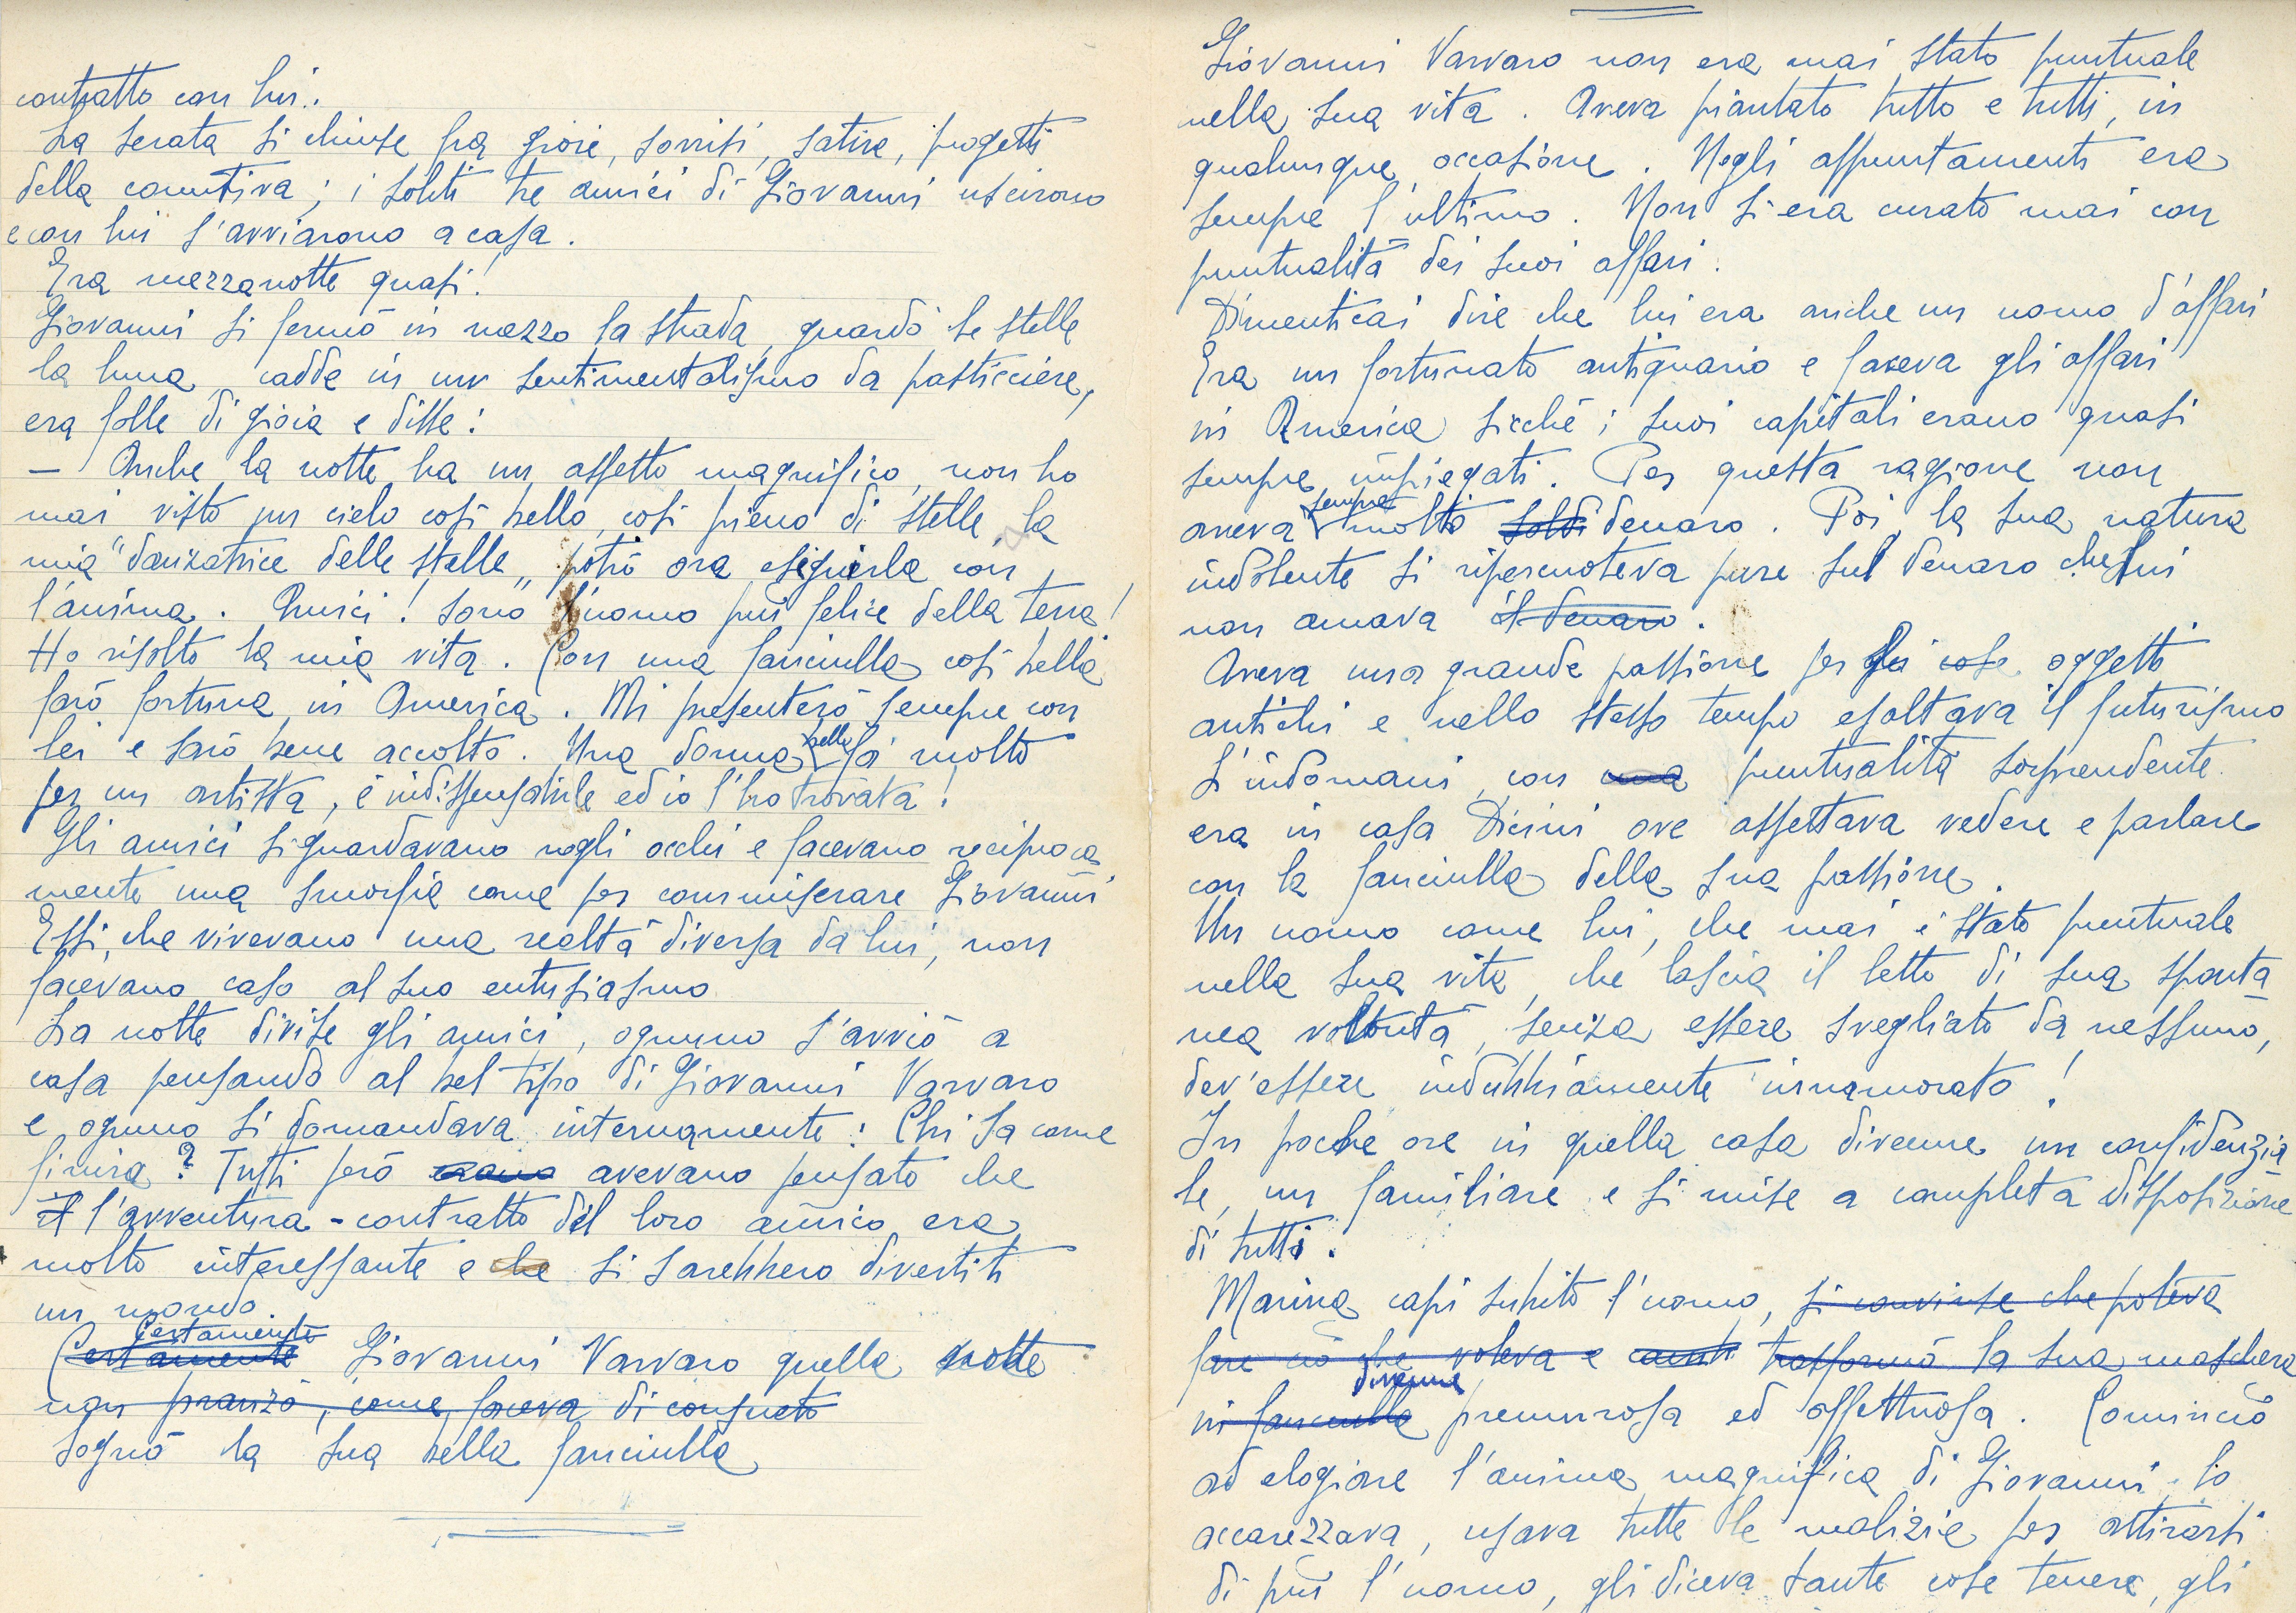 contratto con lui.
La serata si chiuse fra gioie, sorrisi, satire, progetti
della comitiva; i soliti tre amici di Giovanni uscirono
e con lui s'avviarono a casa.
Era mezzanotte quasi!
Giovanni si fermò in mezzo la strada, guardò le stelle
la luna, cadde in un sentimentalismo da pasticciere,
era folle di gioia e disse:
— Anche la notte ha un aspetto magnifico, non ho
mai visto un cielo così bello, così pieno di stelle, la
mia "danzatrice delle stelle" potrò ora eseguirla con
l'anima. Amici! sono l'uomo più felice della terra!
Ho risolto la mia vita. Con una fanciulla così bella
farò fortuna in America. Mi presenterò sempre con
lei e sarò bene accolto. Una donna bella fa molto
per un artista, è indispensabile ed io l'ho trovata!
Gli amici si guardavano negli occhi e facevano reciproca
mente una smorfia come per commiserare Giovanni
Essi, che vivevano una realtà diversa da lui, non
facevano caso al suo entusiasmo
La notte divise gli amici, ognuno s'avviò a
casa pensando al bel tipo di Giovanni Varvaro
e ognuno si domandava internamente: Chi sa come
finirà? Tutti però erano avevano pensato che
il l'avventura-contratto del loro amico era
molto interessante e che si sarebbero divertiti
un mondo.
Certamente
Certamente Giovanni Varvaro quella notte
non pranzò, come faceva di consueto
sognò la sua bella fanciulla
Giovanni Varvaro non era mai stato puntuale
nella sua vita. Aveva piantato tutto e tutti, in
qualunque occasione. Negli appuntamenti era
sempre l'ultimo. Non si era curato mai con
puntualità dei suoi affari.
Dimenticai dire che lui era anche un uomo d'affari
Era un fortunato antiquario e faceva gli affari
in America sicché i suoi capitali erano quasi
sempre impiegati. Per questa ragione non
aveva sempre molto soldi denaro. Poi, la sua natura
indolente si ripercuoteva pure sul denaro che lui
non amava il denaro.
Aveva una grande passione per gli cose oggetti
antichi e nello stesso tempo esaltava il futurismo
L'indomani, con una puntualità sorprendente
era in casa Dicini ove aspettava vedere e parlare
con la fanciulla della sua passione.
Un uomo come lui, che mai è stato puntuale
nella sua vita, che lascia il letto di sua sponta
nea volontà, senza essere svegliato da nessuno,
dev'essere indubbiamente innamorato!
In poche ore in quella casa divenne un confidenzia
le, un familiare e si mise a completa disposizione
di tutti.
Marina capì subito l'uomo, si convinse che poteva
fare ciò che voleva e trasformò la sua maschera
in fanciulla divenne premurosa ed affettuosa. Cominciò
ad elogiare l'anima magnifica di Giovanni, lo
accarezzava, usava tutte le malizie per attirarsi
di più l'uomo, gli diceva tante cose tenere, gli